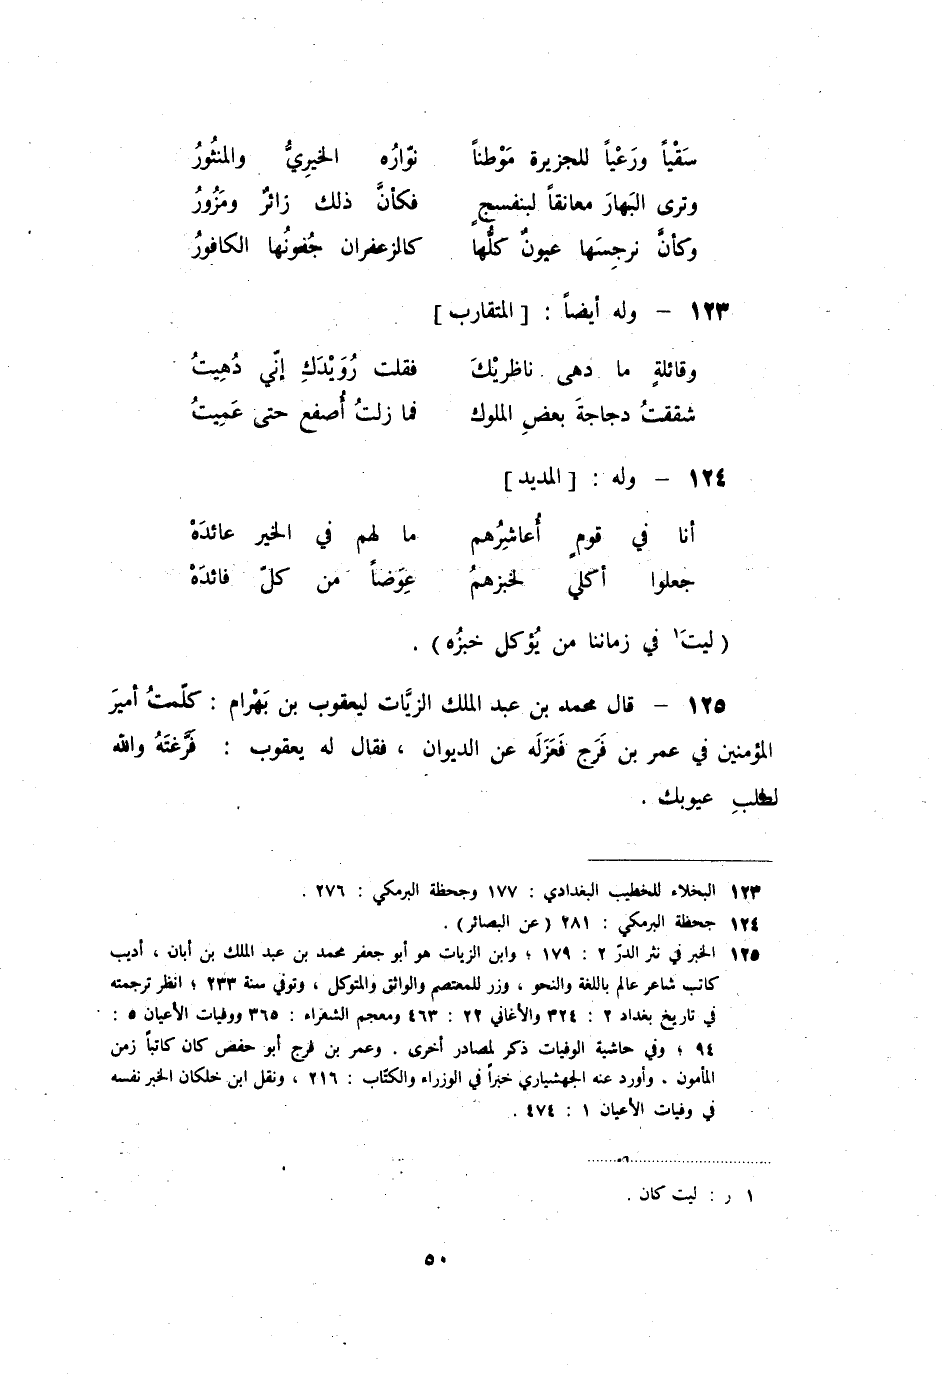 سَقْياً ورَعْياً للجزيرة مَوْطناً نوّارُه الخيريُّ والمنثُورُ
وترى البَهارَ معانقاً لبنفسجٍ فكأنَّ ذلك زائرٌ ومَزُورُ
وكأنَّ نرجِسَها عيونٌ كلُّها كالزعفران جُفونُها الكافورُ
١٢٣ – وله أيضاً : [ المتقارب ]
وقائلةٍ ما دهى ناظريْكَ فقلت رُوَيْدَكِ إنّي دُهِيتُ
شققتُ دجاجةَ بعضِ الملوك فما زلتُ أُصفع حتى عَمِيتُ
١٢٤ – وله : [ المديد ]
أنا في قومٍ أُعاشِرُهم ما لهم في الخير عائدَهْ
جعلوا أكلي لخبزهمُ عِوَضاً من كلّ فائدَهْ
( ليتَ١ في زماننا من يُؤكل خبزُه ) .
١٢٥ – قال محمد بن عبد الملك الزيَّات ليعقوب بن بَهْرام : كلّمتُ أميرَ
المؤمنين في عمر بن فَرَج فَعَزَلَه عن الديوان ، فقال له يعقوب : فَرَّغتَهُ والله
لطلبِ عيوبك .
١٢٣ البخلاء للخطيب البغدادي : ١٧٧ وجحظة البرمكي : ٢٧٦ .
١٢٤ جحظة البرمكي : ٢٨١ ( عن البصائر ) .
١٢٥ الخبر في نثر الدرّ ٢ : ١٧٩ ؛ وابن الزيات هو أبو جعفر محمد بن عبد الملك بن أبان ، أديب
كاتب شاعر عالم باللغة والنحو ، وزر للمعتصم والواثق والمتوكل ، وتوفي سنة ٢٣٣ ؛ انظر ترجمته
في تاريخ بغداد ٢ : ٣٢٤ والأغاني ٢٢ : ٤٦٣ ومعجم الشعراء : ٣٦٥ ووفيات الأعيان ٥ :
٩٤ ؛ وفي حاشية الوفيات ذكر لمصادر أخرى . وعمر بن فرج أبو حفص كان كاتباً زمن
المأمون . وأورد عنه الجهشياري خبراً في الوزراء والكتّاب : ٢١٦ ، ونقل ابن خلكان الخبر نفسه
في وفيات الأعيان ١ : ٤٧٤ .
١ ر : ليت كان .
٥٠